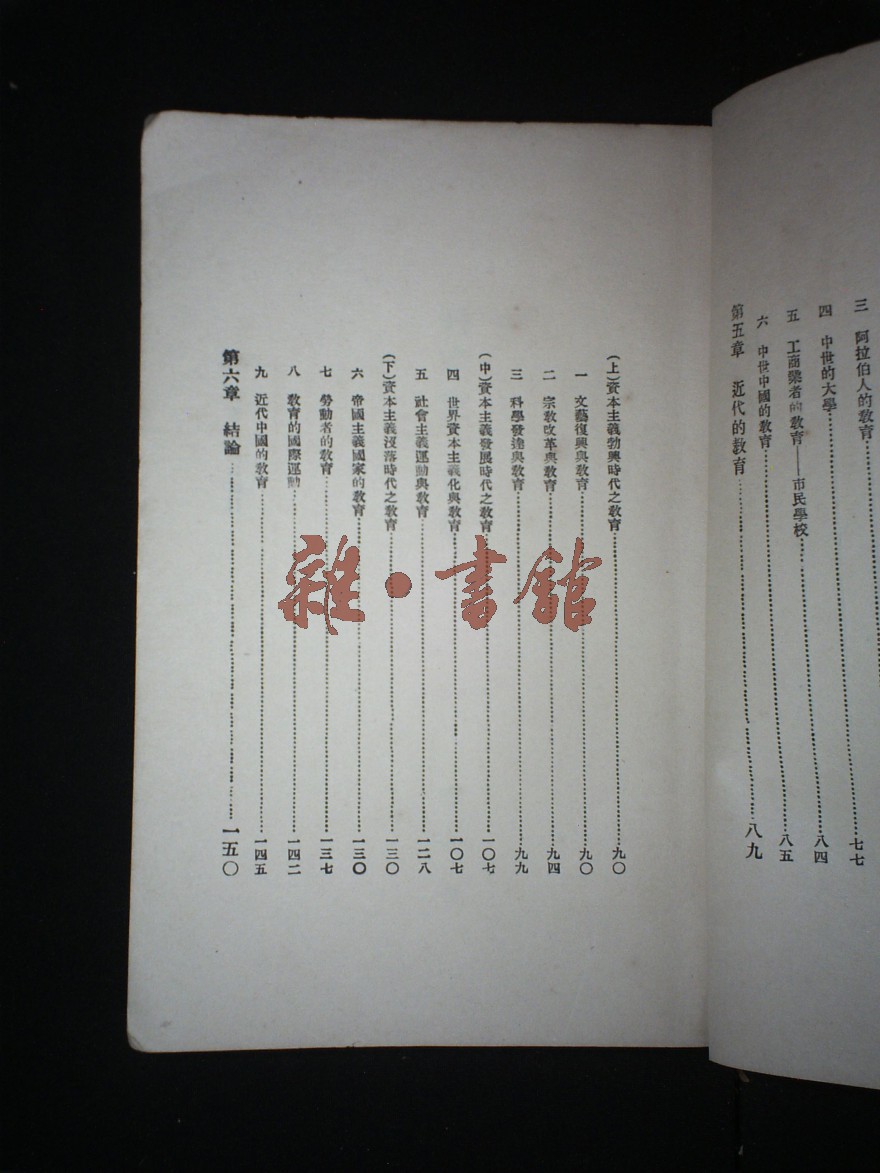 三　阿拉伯人的教育……七七
四　中世的大學……八四
五　工商業者的教育——市民學校……八五
六　中世中國的教育……
第五章　近代的教育……八九
(上)資本主義勃興時代之教育……九〇
一　文藝復興與教育……九〇
二　宗教改革與教育……九四
三　科學發達與教育……九九
(中)資本主義發展時代之教育……一〇七
四　世界資本主義化與教育……一〇七
五　社會主義運動與教育……一二八
(下)資本主義沒落時代之教育……一三〇
六　帝國主義國家的教育……一三〇
七　勞動者的教育……一三七
八　教育的國際運動……一四二
九　近代中國的教育……一四五
第六章　結論……一五〇
雜·書館